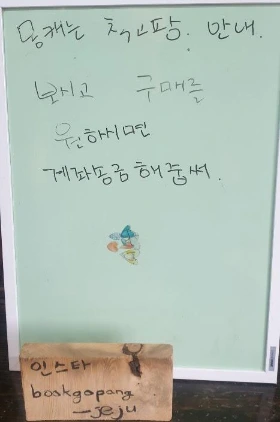 몽캐는 책고팡. 안내.
보시고 구매를
원하시면
계좌송금 해줍써.
인스타
bookgopang
-jeju